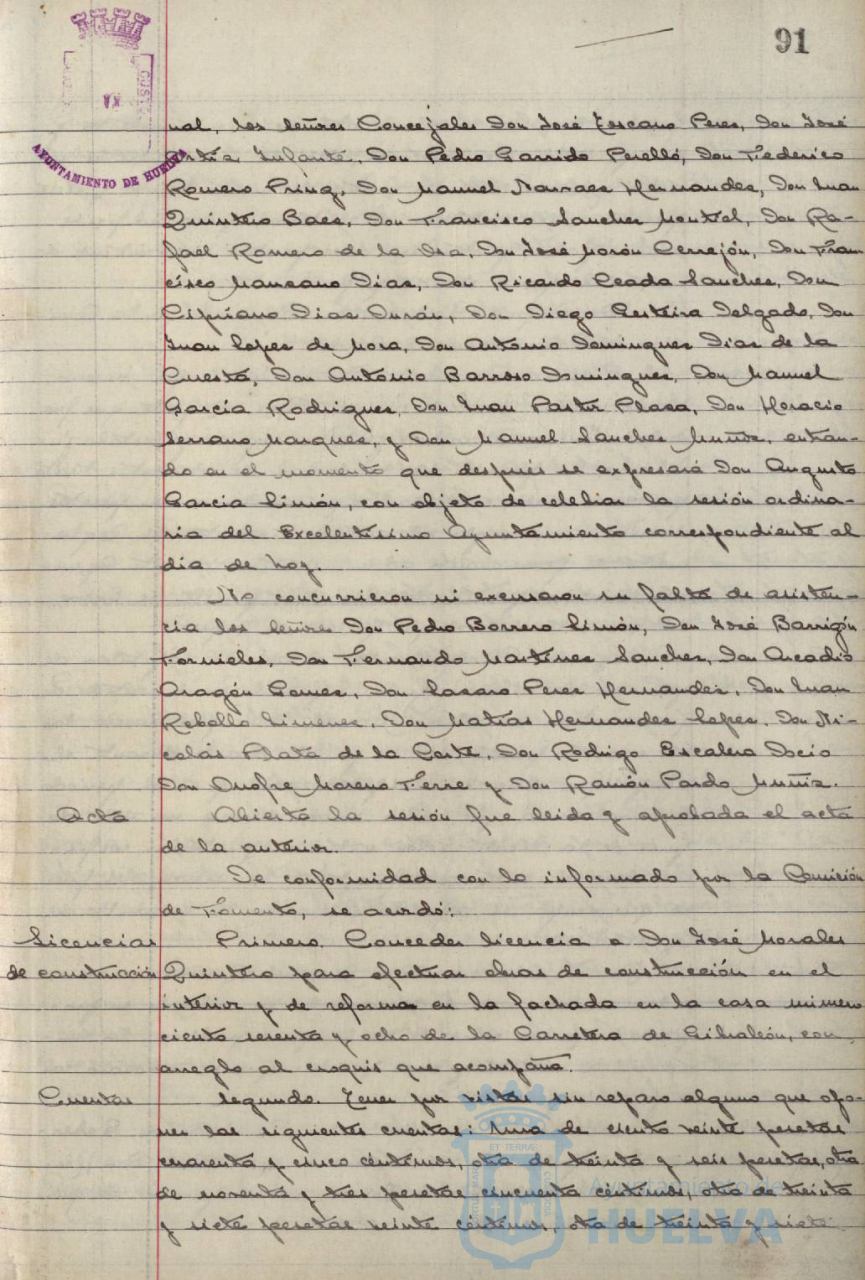 91
AYUNTAMIENTO DE HUELVA
nal, los señores Concejales Don José Toscano Perez, Don José
Ortiz Infante, Don Pedro Garrido Perelló, Don Federico
Romero Prinz, Don Manuel Narvaez Hernandez, Don Juan
Quintero Baez, Don Francisco Sanchez Montiel, Don Ra-
fael Romero de la Osa, Don José Morón Cerrejón, Don Fran
cisco Manzano Diaz, Don Ricardo Ceada Sanchez, Don
Cipriano Diaz Durán, Don Diego Delgado, Don
Juan Lopez de Mora, Don Antonio Dominguez Diaz de la
Cuesta, Don Antonio Barroso Dominguez, Don Manuel
García Rodriguez, Don Juan Pastor Plaza, Don Horacio
Serrano Marquez, y Don Manuel Sanchez Muñiz, entran-
do en el momento que después se expresará Don Augusto
García Limón, con objeto de celebrar la sesión ordina-
ria del Excelentísimo Ayuntamiento correspondiente al
día de hoy.
No concurrieron ni excusaron su falta de asisten-
cia los señores Don Pedro Borrero Limón, Don José Barrigón
Fornieles, Don Fernando Martinez Sanchez, Don Arcadio
Aragón Gomez, Don Lazaro Perez Hernandez, Don Juan
Rebollo Jimenez, Don Matías Hernandez Lopez, Don Ni-
colás Plata de la Corte, Don Rodrigo Escalera Docio
Don Onofre Moreno Ferre y Don Ramón Pardo Muñiz.
Acta
Abierta la sesión fue leida y aprobada el acta
de la anterior.
De conformidad con lo informado por la Comisión
de Fomento, se acordó:
Licencias
de construcción
Primero. Conceder licencia a Don José Morales
Quintero para efectuar obras de construcción en el
interior y de reforma en la fachada en la casa número
ciento sesenta y ocho de la Carretera de Gibraleón, con
arreglo al croquis que acompaña.
Cuentas
Segundo. Tener por vistas sin reparo alguno que opo-
ner las siguientes cuentas: Una de ciento veinte pesetas
cuarenta y cinco céntimos, otra de treinta y seis pesetas, otra
de noventa y tres pesetas cincuenta céntimos, otra de treinta
y siete pesetas veinte céntimos, otra de treinta y siete
Ayuntamiento de
HUELVA